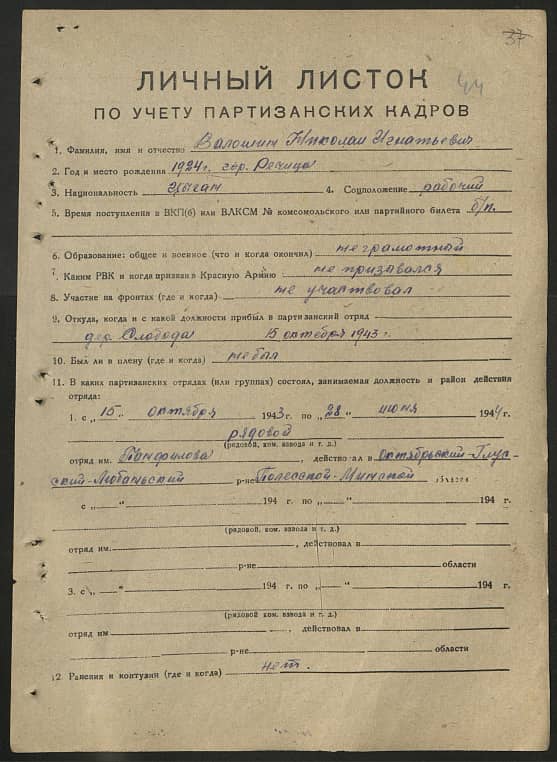 37
44
ЛИЧНЫЙ ЛИСТОК
ПО УЧЕТУ ПАРТИЗАНСКИХ КАДРОВ
1. Фамилия, имя и отчество Валошин Николай Игнатьевич
2. Год и место рождения 1924 г. гор. Речица
3. Национальность цыган 4. Соцположение рабочий
5. Время поступления в ВКП(б) или ВЛКСМ № комсомольского или партийного билета б/п.
6. Образование: общее и военное (что и когда окончил) не грамотный
7. Каким РВК и когда призван в Красную Армию не призавался
8. Участие на фронтах (где и когда) не участвовал
9. Откуда, когда и с какой должности прибыл в партизанский отряд
дер. Слобода 15 октября 1943 г.
10. Был ли в плену (где и когда) не был
11. В каких партизанских отрядах (или группах) состоял, занимаемая должность и район действия
отряда:
1. с „15“ октября 1943 г. по „28“ июня 1944 г.
рядовой
(рядовой, ком. взвода и т. д.)
отряд им. Панфилова, действовал в Октябрьский-Глус-
ский-Любаньский р-не Полесской-Минской
с „ “ 194 г. по „ “ 194 г.
(рядовой, ком. взвода и т. д.)
отряд им. , действовал в
р-не области
3. с „ “ 194 г. по „ “ 194 г.
(рядовой, ком. взвода и т. д.)
отряд им , действовал в
р-не области
12 Ранения и контузии (где и когда) нет.